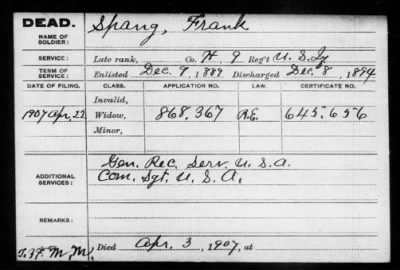 DEAD.
NAME OF SOLDIER: Spang, Frank
SERVICE: Late rank, Co. H, 9 Reg't U.S. Iy
TERM OF SERVICE: Enlisted Dec. 9, 1889 Discharged Dec. 8, 1894
DATE OF FILING. CLASS. APPLICATION NO. LAW. CERTIFICATE NO.
Invalid,
1907 Apr. 22 Widow, 868.367 R.E. 645.656
Minor,
ADDITIONAL SERVICES: Gen. Rec. Serv. U.S.A.
Com. Sgt. U.S.A.
REMARKS:
Died Apr. 3, 1907, at